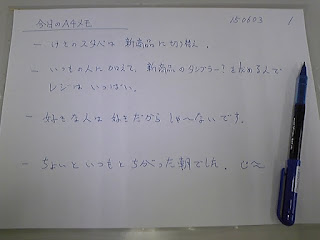 今日のA4メモ 150603 1
– けとのスタバは 新商品に切り替え.
– いつもの人にかえて, 新商品のタンブラーも求める人で
レジは いっぱい.
– 好きな人は 好きだから しゃ〜ないです.
– ちょいといつもとちがった朝でした. じ〜